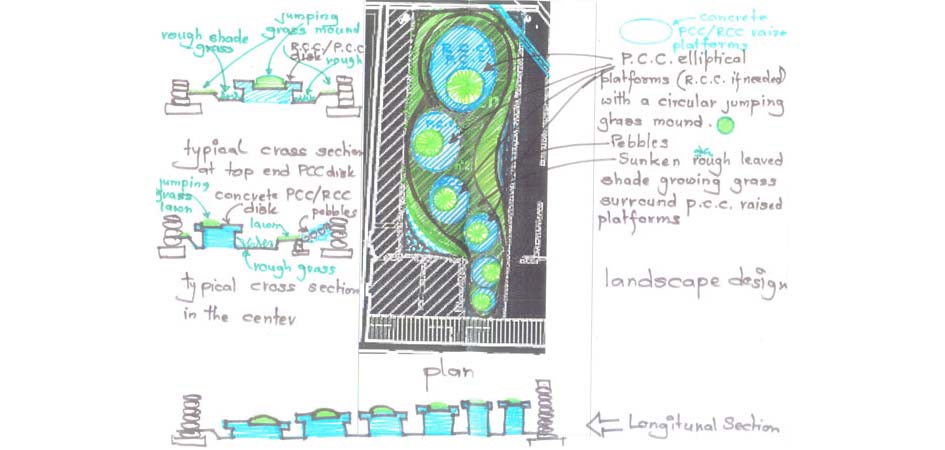 jumping
grass mound
rough shade
grass
R.C.C./P.C.C
disk
rough
typical cross section
at top end PCC disk
jumping
grass
lawn
concrete PCC/RCC
disk
pebbles
lawn
rough grass
typical cross section
in the center
R.C.C
plan
concrete
PCC/RCC raise
platforms
P.C.C. elliptical
platforms (R.C.C. if needed)
with a circular jumping
grass mound.
Pebbles
Sunken rough leaved
shade growing grass
surround p.c.c. raised
platforms
landscape design
Longitunal Section